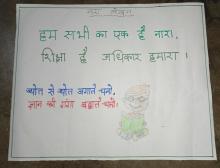 नारा लेखन
हम सभी का एक है नारा,
शिक्षा है अधिकार हमारा ।
ज्योत से ज्योत जगाते चलो,
ज्ञान की गंगा बहाते चलो।